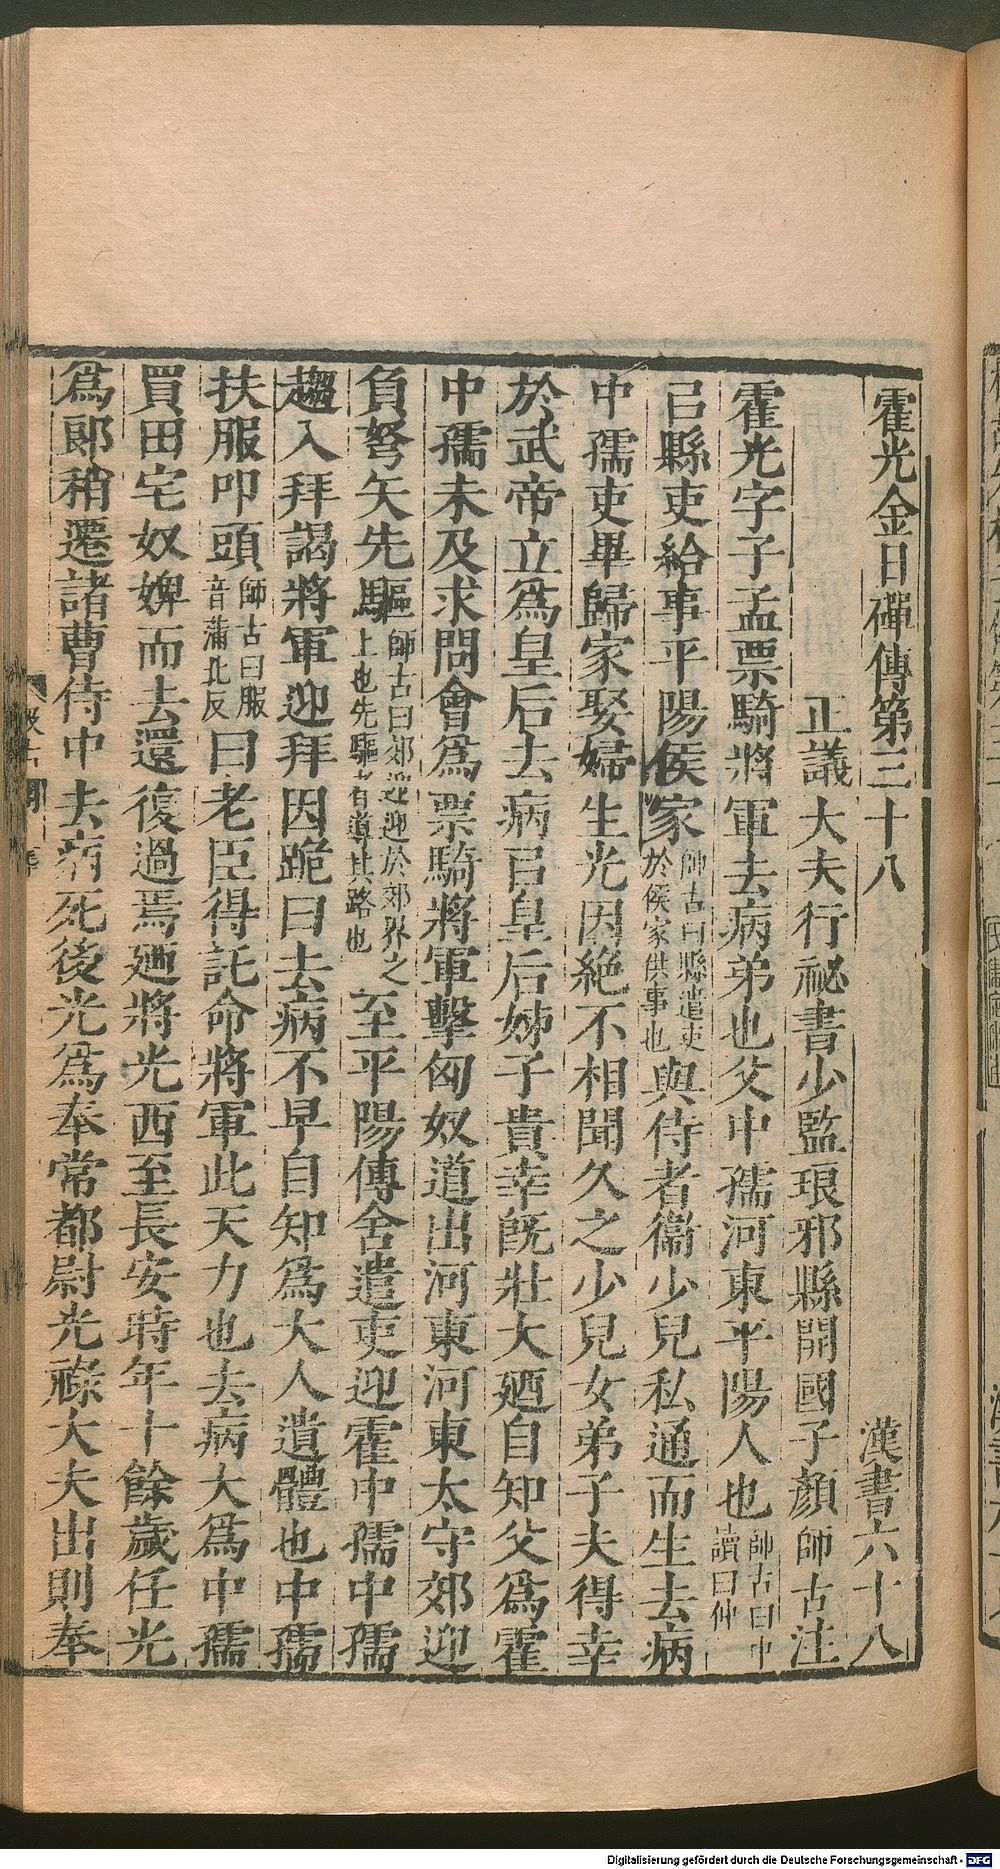 霍光金日磾傳第三十八 漢書六十八
正議大夫行祕書少監琅邪縣開國子顏師古注
霍光字子孟票騎將軍去病弟也父中孺河東平陽人也師古曰中讀曰仲
㠯縣吏給事平陽侯家師古曰縣遣吏於侯家供事也與侍者衞少兒私通而生去病
中孺吏畢歸家娶婦生光因絕不相聞久之少兒女弟子夫得幸
於武帝立爲皇后去病㠯皇后姊子貴幸旣壯大廼自知父爲霍
中孺未及求問會爲票騎將軍擊匈奴道出河東河東太守郊迎
負弩矢先驅師古曰郊迎迎於郊界之上也先驅者導其路也至平陽傳舍遣吏迎霍中孺中孺
趨入拜謁將軍迎拜因跪曰去病不早自知爲大人遺體也中孺
扶服叩頭師古曰服音蒲北反曰老臣得託命將軍此天力也去病大爲中孺
買田宅奴婢而去還復過焉廼將光西至長安時年十餘歲任光
爲郎稍遷諸曹侍中去病死後光爲奉常都尉光祿大夫出則奉
Digitalisierung gefördert durch die Deutsche Forschungsgemeinschaft - DFG